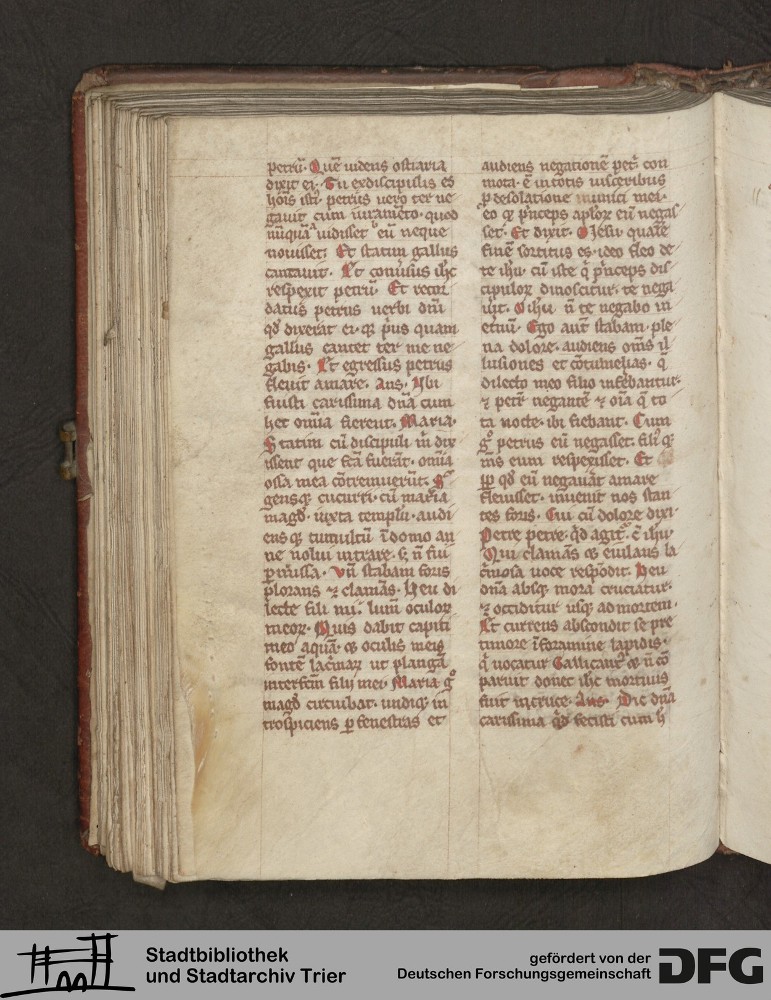 petrū. Quē uidens ostiaria
dixit ei. Tu exdiscipulis es
hoīs isti᷒. petrus uero ter ne
gauit cum iuramēto. quod
nūquā uidisset eū neque
nouisset. Et statim gallus
cantauit. Et conuersus ihc
respexit petrū. Et recor
datus petrus uerbi dn̄i
qd̄ dixerat ei. qꝫ p̄us quam
gallus cantet ter me ne
gabis. Et egressus petrus
fleuit amare. Ans. Vbi
fuisti carissima dn̄a cum
hec om̄ia fierent. Maria.
Statim cū discipuli m̄ dix
issent que fc̄a fuerāt. om̄ia
ossa mea cōtremuerūt. Sur
gensqꝫ cucurri. cū maria
magd̄. iuxta templū. audi
ensqꝫ tumultū ī domo an
ne uolui intrare. sꝫ n̄ fui
ꝑmissa. Vn̄ stabam foris
plorans ⁊ clamās. Heu di
lecte fili mi. lum̄ oculoꝝ
meoꝝ. Quis dabit capiti
meo aquā. et oculis meis
fontē lac̄maꝝ ut plangā
interfcm̄ filij mei. Maria g̊
magd̄ circuibat. undiqꝫ in
trospiciens ꝑ fenestras et
audiens negationē pet᷒. con
mota. ē in totis uisceribus
p̄ desolatione mei.
eo qꝫ p̄nceps aploꝝ eū negas
set. Et dixit. O Jesu quālē
finē sortitus es. ideo fleo de
te ihū. cū iste q̄ p̄nceps dis
cipuloꝝ dinoscitur. te nega
uit. O ihū n̄ te negabo in
et̄nū. Ego aut̄ stabam ple
na dolore. audiens om̄s il
lusiones et cōtumelias. q̄
dilecto meo filio inferebantur.
⁊ petrū negantē ⁊ oīa q̄ to
ta nocte. ibi fiebant. Cum
g̊ petrus eū negasset. filiꝰ qꝫ
m̄s eum respexisset. Et
ꝑp qd̄ eū negauāt amare
fleuisset. inuenit nos stan
tes foris. Cui cū dolore dixi.
Petre petre. qd̄ agit᷒. ē ihū.
Qui clamās et eiulans la
c̄mosa uoce respōdit. Heu
dn̄a absqꝫ mora cruciatur.
⁊ occiditur usqꝫ ad mortem.
Et currens abscondit se pre
timore ī foramine lapidis.
q̄ uocatur Gallicantꝰ et n̄ cō
paruit donec ihc mortuus
fuit in cruce. Ans. Dic dn̄a
carissima qd̄ fecisti cum h̄
Stadtbibliothek
und Stadtarchiv Trier
gefördert von der
Deutschen Forschungsgemeinschaft
DFG